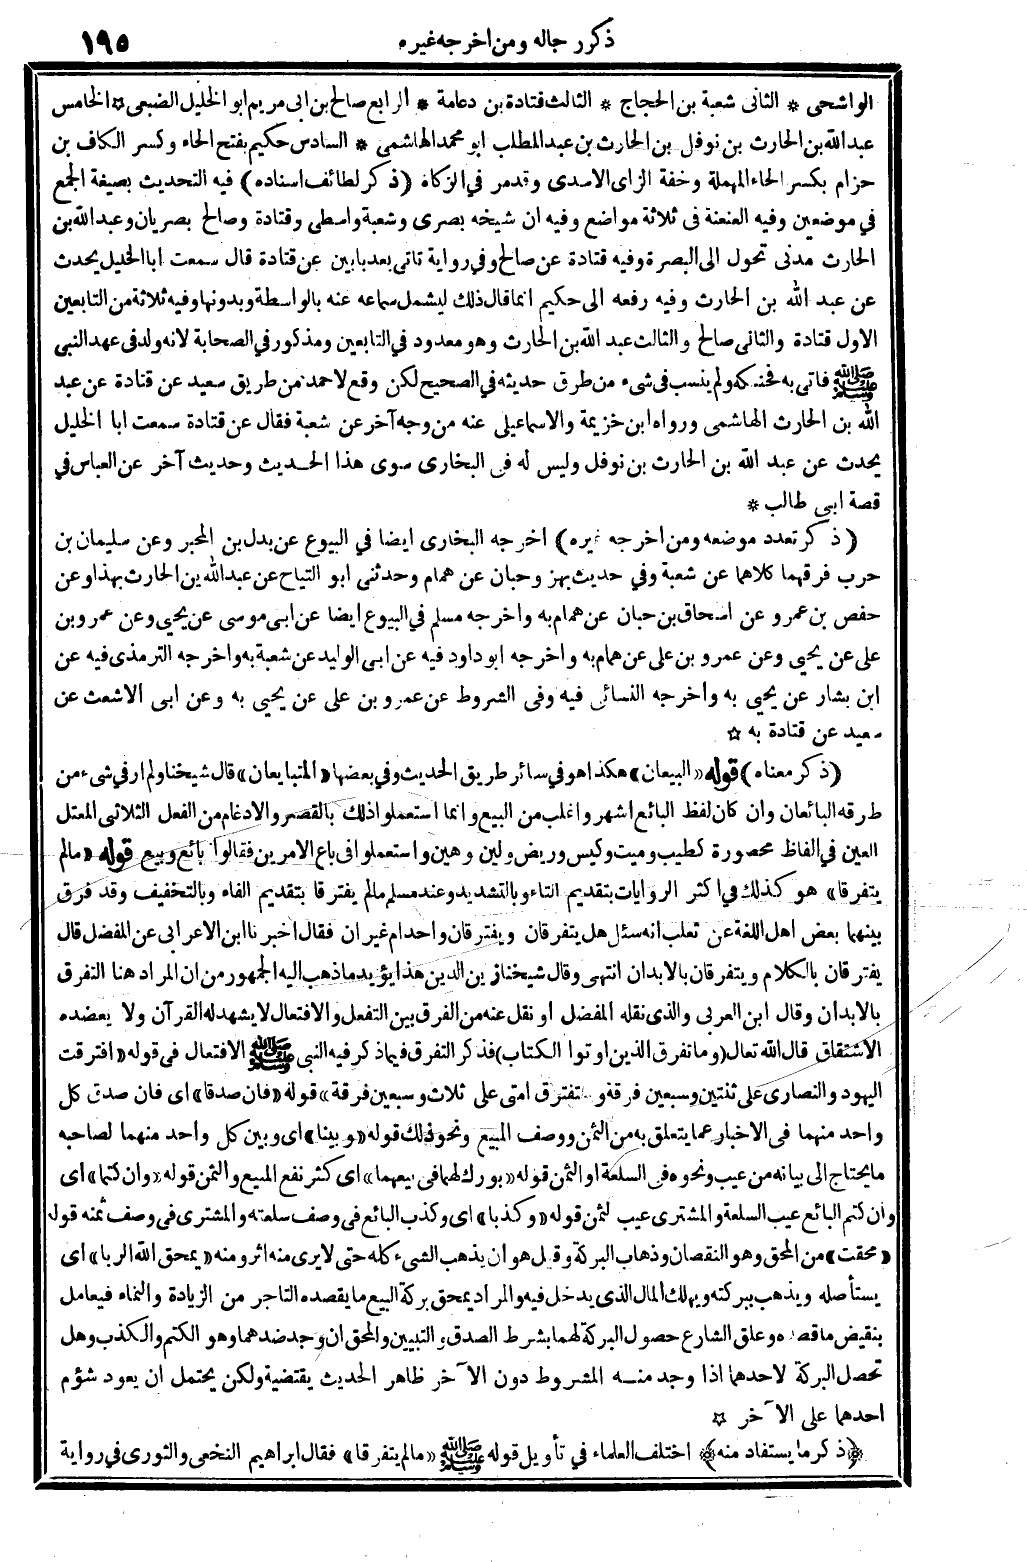 ذكر رجاله ومن اخرجه غيره
١٩٥
الواشحى * الثانى شعبة بن الحجاج * الثالث قتادة بن دعامة * الرابع صالح بن ابى مريم ابو الخليل الضبعى * الخامس
عبدالله بن الحارث بن نوفل بن الحارث بن عبدالمطلب ابو محمد الهاشمى * السادس حكيم بفتح الحاء وكسر الكاف بن
حزام بكسر الحاء المهملة وخفة الزاى الاسدى وقدمر في الزكاة (ذكر لطائف اسناده) فيه التحديث بصيغة الجمع
في موضعين وفيه العنعنة في ثلاثة مواضع وفيه ان شيخه بصرى وشعبة واسطى وقتادة وصالح بصريان وعبدالله بن
الحارث مدنى تحول الى البصرة وفيه قتادة عن صالح وفي رواية تاتى بعد بابين عن قتادة قال سمعت ابا الخليل يحدث
عن عبد الله بن الحارث وفيه رفعه الى حكيم انما قال ذلك ليشمل سماعه عنه بالواسطة وبدونها وفيه ثلاثة من التابعين
الاول قتادة والثانى صالح والثالث عبد الله بن الحارث وهو معدود في التابعين ومذكور في الصحابة لانه ولد فى عهد النبى
ﷺ فاتى به فحنكه ولم ينسب فى شىء من طرق حديثه في الصحيح لكن وقع لاحمد من طريق سعيد عن قتادة عن عبد
الله بن الحارث الهاشمى ورواه ابن خزيمة والاسماعيلى عنه من وجه آخر عن شعبة فقال عن قتادة سمعت ابا الخليل
يحدث عن عبد الله بن الحارث بن نوفل وليس له فى البخارى سوى هذا الحديث وحديث آخر عن العباس في
قصة ابى طالب *
(ذكر تعدد موضعه ومن اخرجه غيره) اخرجه البخارى ايضا في البيوع عن بدل بن المحبر وعن سليمان بن
حرب فرقهما كلاهما عن شعبة وفي حديث بهز وحبان عن همام وحدثنى ابو التياح عن عبدالله بن الحارث بهذا وعن
حفص بن عمرو عن اسحاق بن حبان عن همام به واخرجه مسلم في البيوع ايضا عن ابى موسى عن يحيى وعن عمرو بن
على عن يحيي وعن عمرو بن على عن همام به واخرجه ابو داود فيه عن ابى الوليد عن شعبة به واخرجه الترمذى فيه عن
ابن بشار عن يحيي به واخرجه النسائى فيه وفى الشروط عن عمرو بن على عن يحيي به وعن ابى الاشعث عن
سعيد عن قتادة به *
(ذكر معناه) قوله «البيعان» هكذا هو في سائر طريق الحديث وفي بعضها «المتبايعان» قال شيخنا ولم ار في شىء من
طرقه البائعان وان كان لفظ البائع اشهر واغلب من البيع وانما استعملوا ذلك بالقصر والادغام من الفعل الثلاثى المعتل
العين في الفاظ محصورة كطيب وميت وكيس وريض ولين وهين واستعملوا فى باع الامرين فقالوا بائع وبيع قوله «مالم
يتفرقا» هو كذلك في اكثر الروايات بتقديم التاء وبالتشديد وعند مسلم مالم يفترقا بتقديم الفاء وبالتخفيف وقد فرق
بينهما بعض اهل اللغة عن ثعلب انه سئل هل يتفرقان ويفترقان واحد ام غيران فقال اخبرنا ابن الاعرابى عن المفضل قال
يفترقان بالكلام ويتفرقان بالابدان انتهى وقال شيخنا زين الدين هذا يؤيد ما ذهب اليه الجمهور من ان المراد هنا التفرق
بالابدان وقال ابن العربى والذى نقله المفضل او نقل عنه من الفرق بين التفعل والافتعال لا يشهد له القرآن ولا يعضده
الاشتقاق قال الله تعالى (وما تفرق الذين اوتوا الكتاب) فذكر التفرق فيما ذكر فيه النبى ﷺ الافتعال فى قوله «افترقت
اليهود والنصارى على ثنتين وسبعين فرقة وستفترق امتى على ثلاث وسبعين فرقة» قوله «فان صدقا» اى فان صدق كل
واحد منهما فى الاخبار عما يتعلق به من الثمن ووصف المبيع ونحو ذلك قوله «وبينا» اى وبين كل واحد منهما لصاحبه
ما يحتاج الى بيانه من عيب ونحوه فى السلعة او الثمن قوله «بورك لهما فى بيعهما» اى كثر نفع المبيع والثمن قوله «وان كتما» اى
وان كتم البائع عيب السلعة والمشترى عيب الثمن قوله «وكذبا» اى وكذب البائع فى وصف سلعته والمشترى فى وصف ثمنه قوله
«محقت» من المحق وهو النقصان وذهاب البركة وقيل هو ان يذهب الشىء كله حتى لا يرى منه اثر ومنه «يمحق الله الربا» اى
يستأصله ويذهب ببركته ويهلك المال الذى يدخل فيه والمراد يمحق بركة البيع ما يقصده التاجر من الزيادة والنماء فيعامل
بنقيض ما قصده وعلق الشارع حصول البركة لهما بشرط الصدق والتبيين والمحق ان وجد ضدهما وهو الكتم والكذب وهل
تحصل البركة لاحدهما اذا وجد منه المشروط دون الآخر ظاهر الحديث يقتضية ولكن يحتمل ان يعود شؤم
احدهما على الآخر *
(ذكر ما يستفاد منه) اختلف العلماء في تأويل قوله ﷺ «مالم يتفرقا» فقال ابراهيم النخعى والثورى في رواية